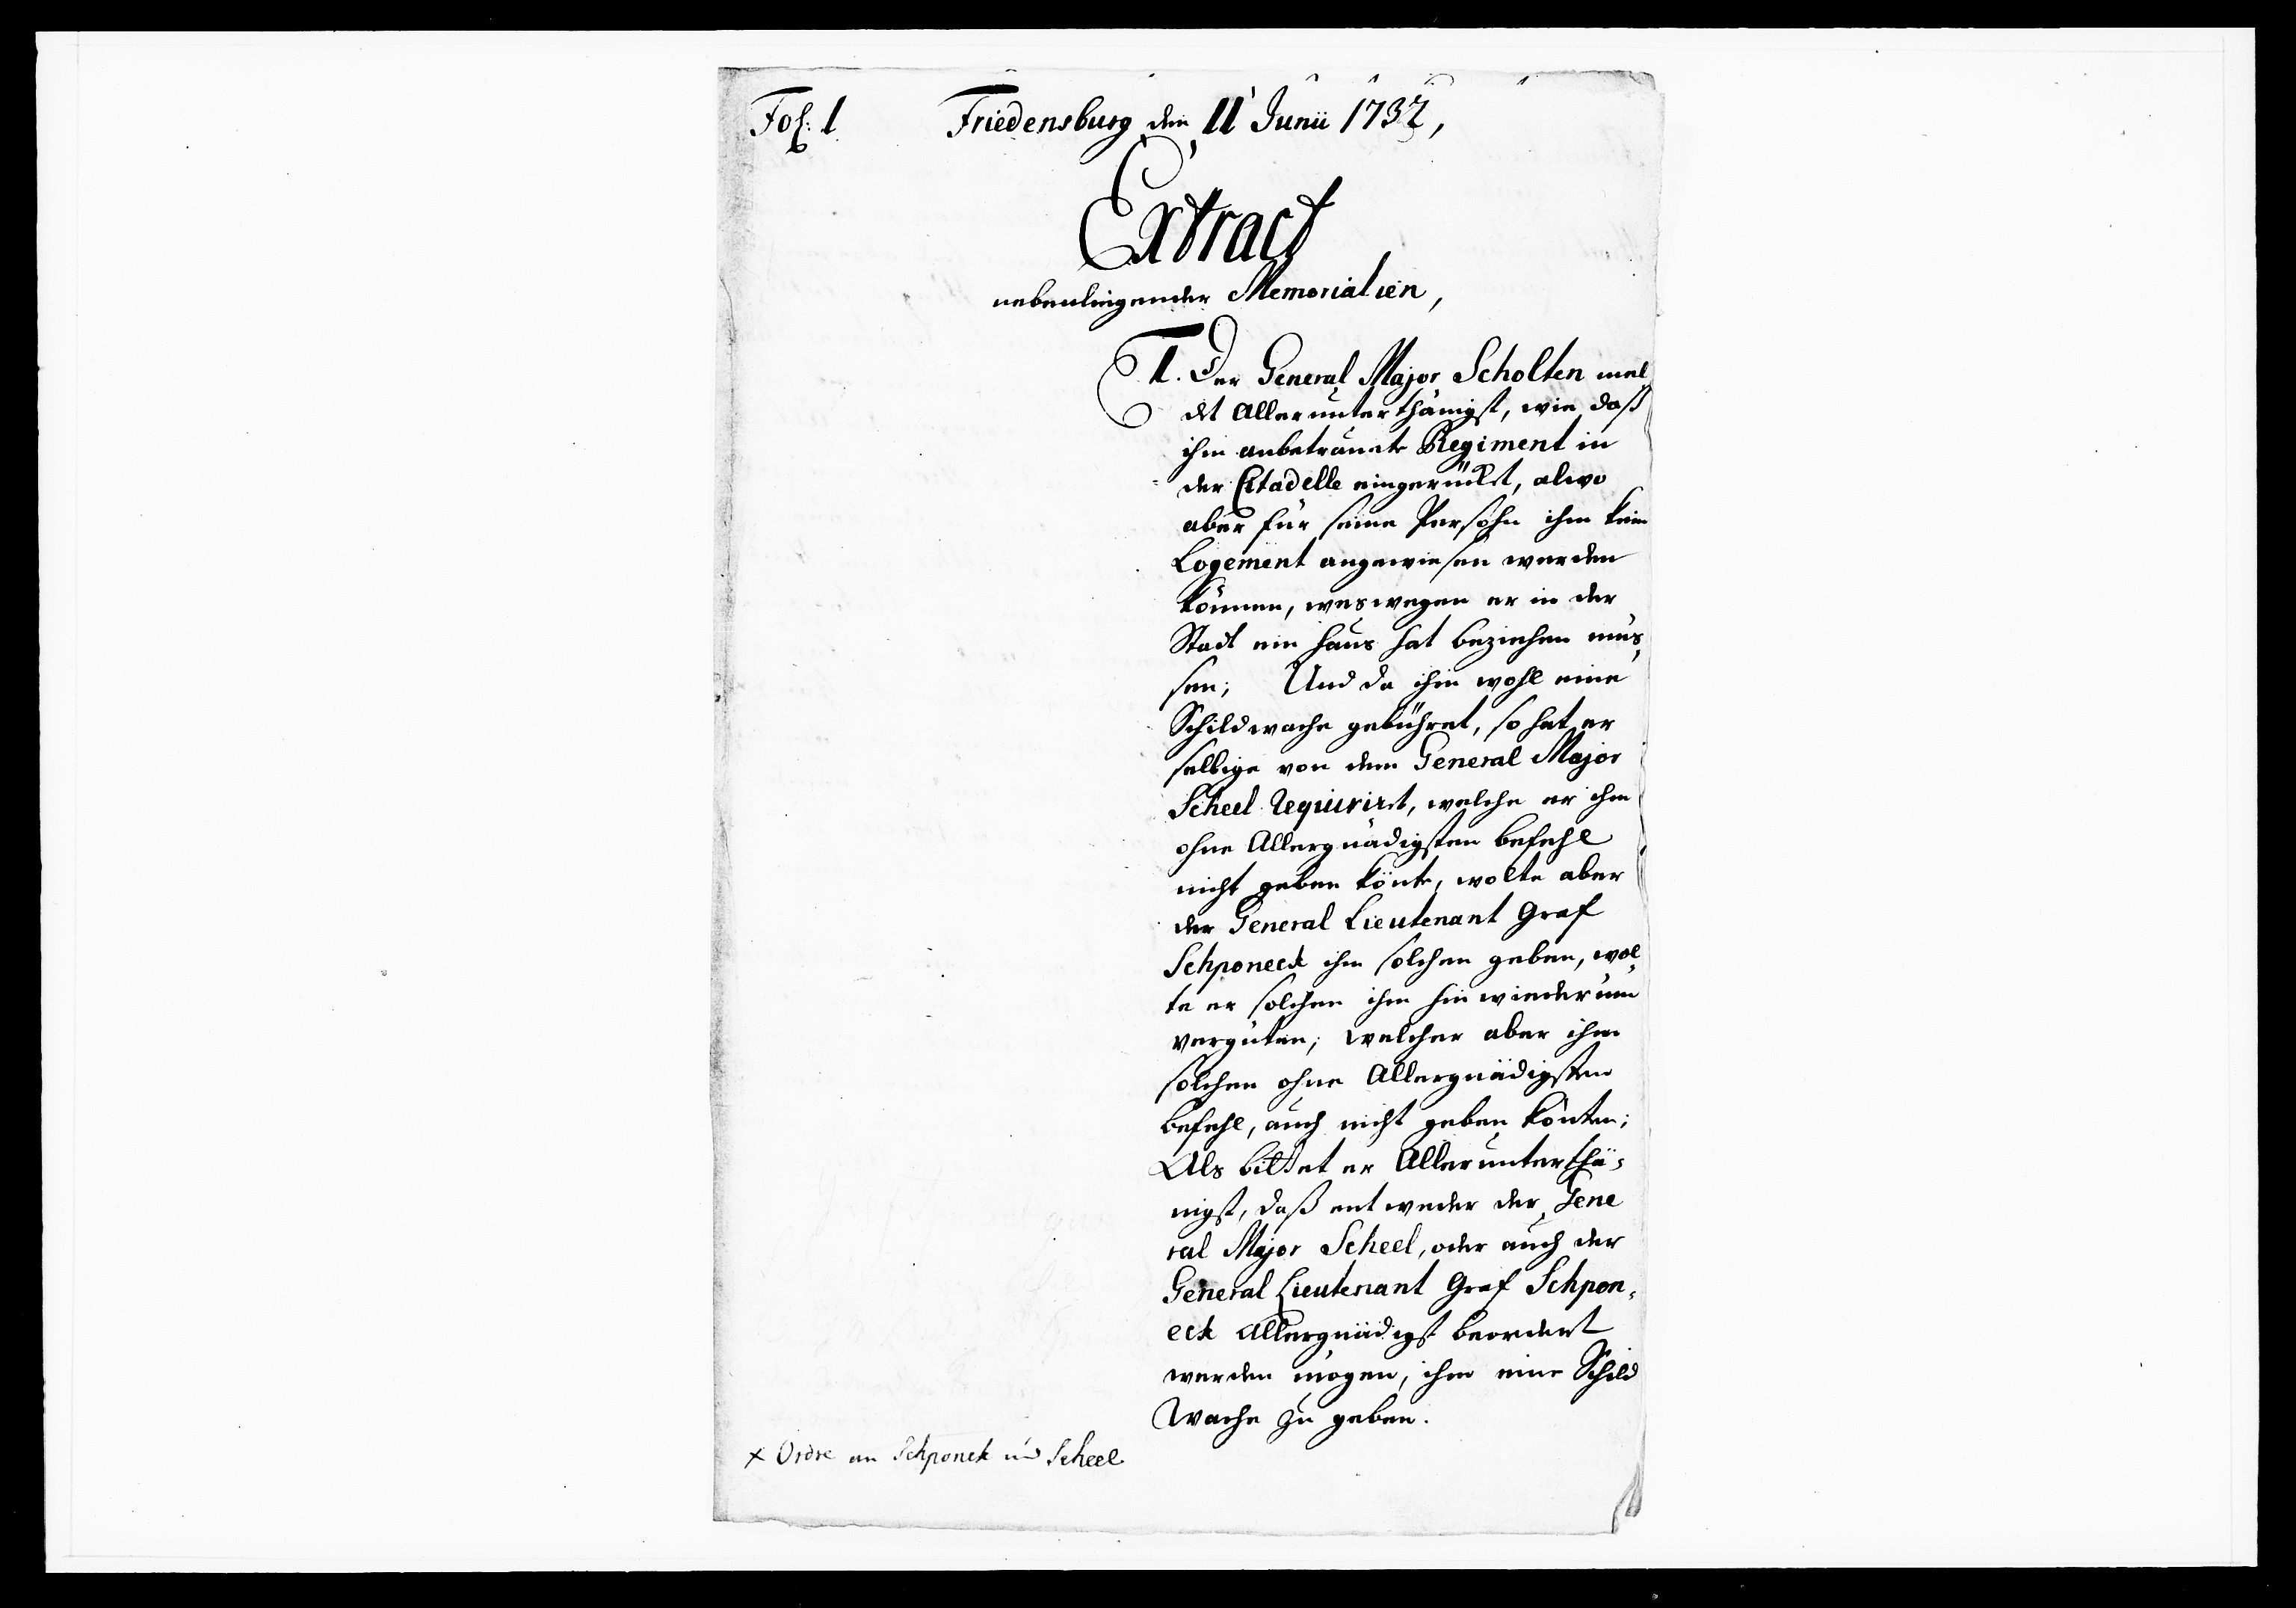 Fol: 1 Friedensburg den 11' Junii 1732,
Extract
nebenliegender Memorialien,
1. Der General Major Scholten mel
det Allerunterthänigst, wie daß
ihm anbetraute Regiment in
der Citadelle eingerückt, alwo
aber für seine Persohn ihm kein
Logement angewiesen werden
können, weswegen er in der
Stadt ein Haus hat beziehen müs¸
sen; Und da ihm wohl eine
Schildwache gebühret, so hat er
selbige von dem General Major
Scheel Requirirt, welche er ihm
ohne Allergnädigsten befehl
nicht geben könte, wolte aber
der General Lieutenant Graf
Schponeck ihm solchen geben, wol¸
te er solchen ihm hinwiederum
vergüten; welcher aber ihm
solchen ohne Allergnädigsten
befehl, auch nicht geben könten;
Als bittet er Allerunterthä¸
nigst, daß entweder der Gene
ral Major Scheel, oder auch der
General Lieutenant Graf Schpon¸
eck Allergnädigst beordert
werden mögen, ihm eine Schild
Wache zu geben.
x Ordre an Schponek und Scheel